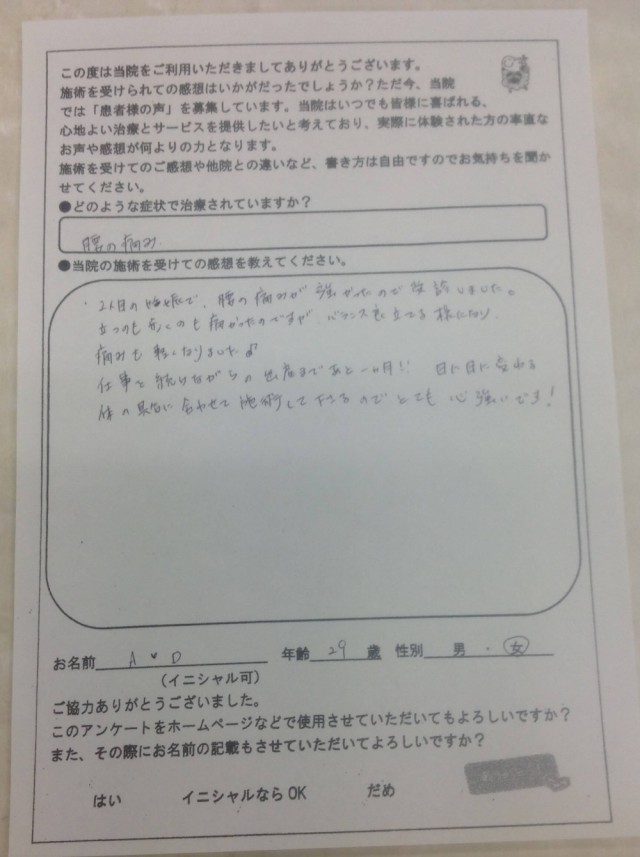 この度は当院をご利用いただきましてありがとうございます。
施術を受けられての感想はいかがだったでしょうか？ただ今、当院
では「患者様の声」を募集しています。当院はいつでも皆様に喜ばれる、
心地よい治療とサービスを提供したいと考えており、実際に体験された方の率直な
お声や感想が何よりの力となります。
施術を受けてのご感想や他院との違いなど、書き方は自由ですのでお気持ちを聞か
せてください。
●どのような症状で治療されていますか？
腰の痛み
●当院の施術を受けての感想を教えてください。
・2人目の妊娠で、腰の痛みが強かったので受診しました。
立つのも歩くのも痛かったのですが バランス良く立てる様になり
痛みも軽くなりました♪
仕事を続けながらの出産まであと一ヵ月!! 日に日に変わる
体の具合に合わせて施術して下さるのでとても心強いです!
お名前 A・D 年齢 29 歳 性別 男 ・ 女
（イニシャル可）
ご協力ありがとうございました。
このアンケートをホームページなどで使用させていただいてもよろしいですか？
また、その際にお名前の記載もさせていただいてよろしいですか？
はい イニシャルなら OK だめ